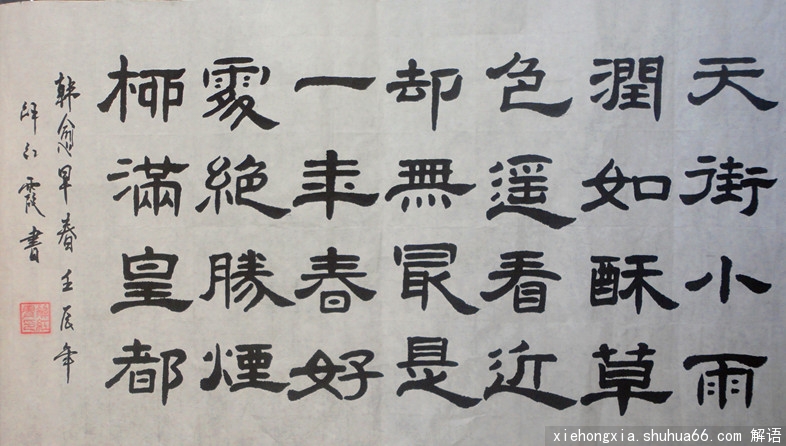 天街小雨
潤如酥草
色遥看近
却無最是
一年春好
處絕勝煙
柳滿皇都
韓愈早春壬辰年
紅霞書
xiehongxia.shuhua66.com 解语